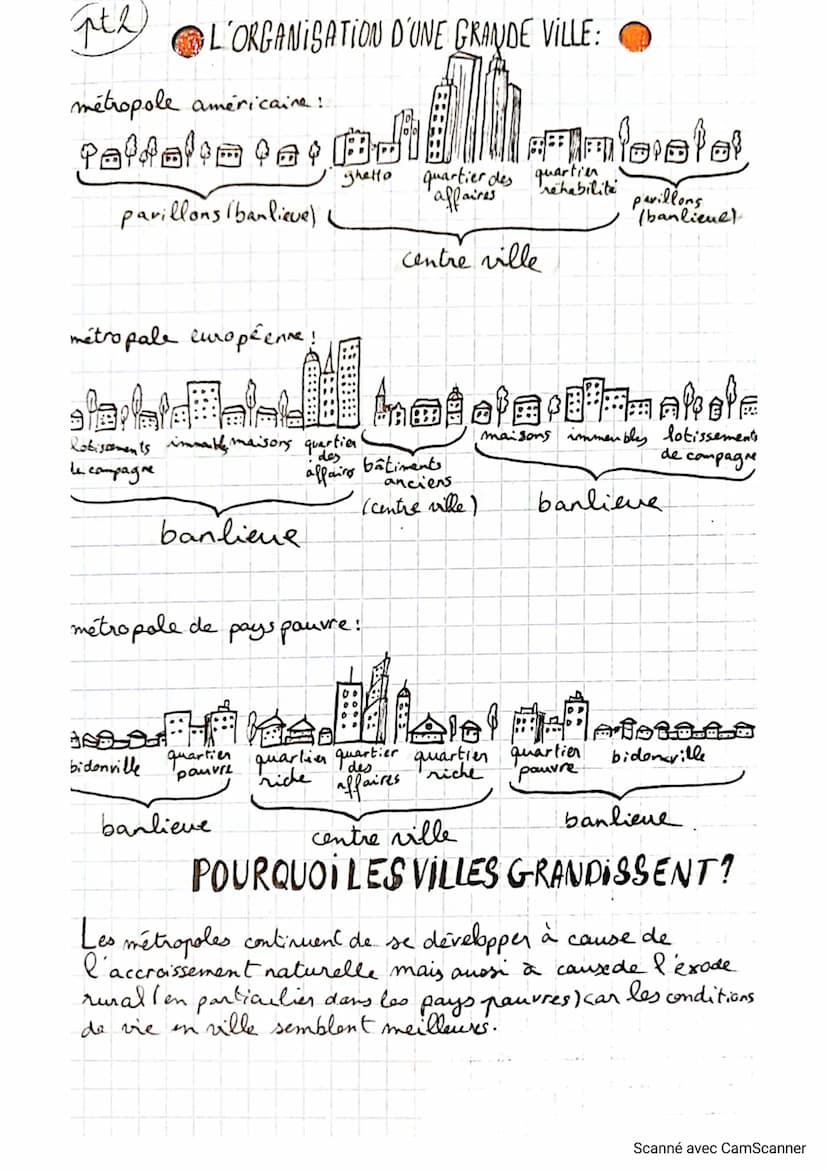 pt2
L'ORGANISATION D'UNE GRANDE VILLE:
métropole américaine:
ghetto
quartier des
affaires
quartier
réhabilité
pavillons (banlieue)
pavillons
(banlieue)
centre ville
métropale européenne:
lotissements
de campagne
immeubles
maisons
quartier
des
affaires
bâtiments
anciens
(centre ville)
maisons
immeubles
lotissements
de campagne
banlieue
banlieue
métropole de pays pauvre:
bidonville
quartier
pauvre
quartier
riche
quartier
des
affaires
quartier
riche
quartier
pauvre
bidonville
banlieue
centre ville
banlieue
POURQUOI LES VILLES GRANDISSENT?
Les métropoles continuent de se développer à cause de
l'accroissement naturelle mais aussi à cause de l'exode
rural (en particulier dans les pays pauvres) car les conditions
de vie en ville semblent meilleures.
Scanné avec CamScanner